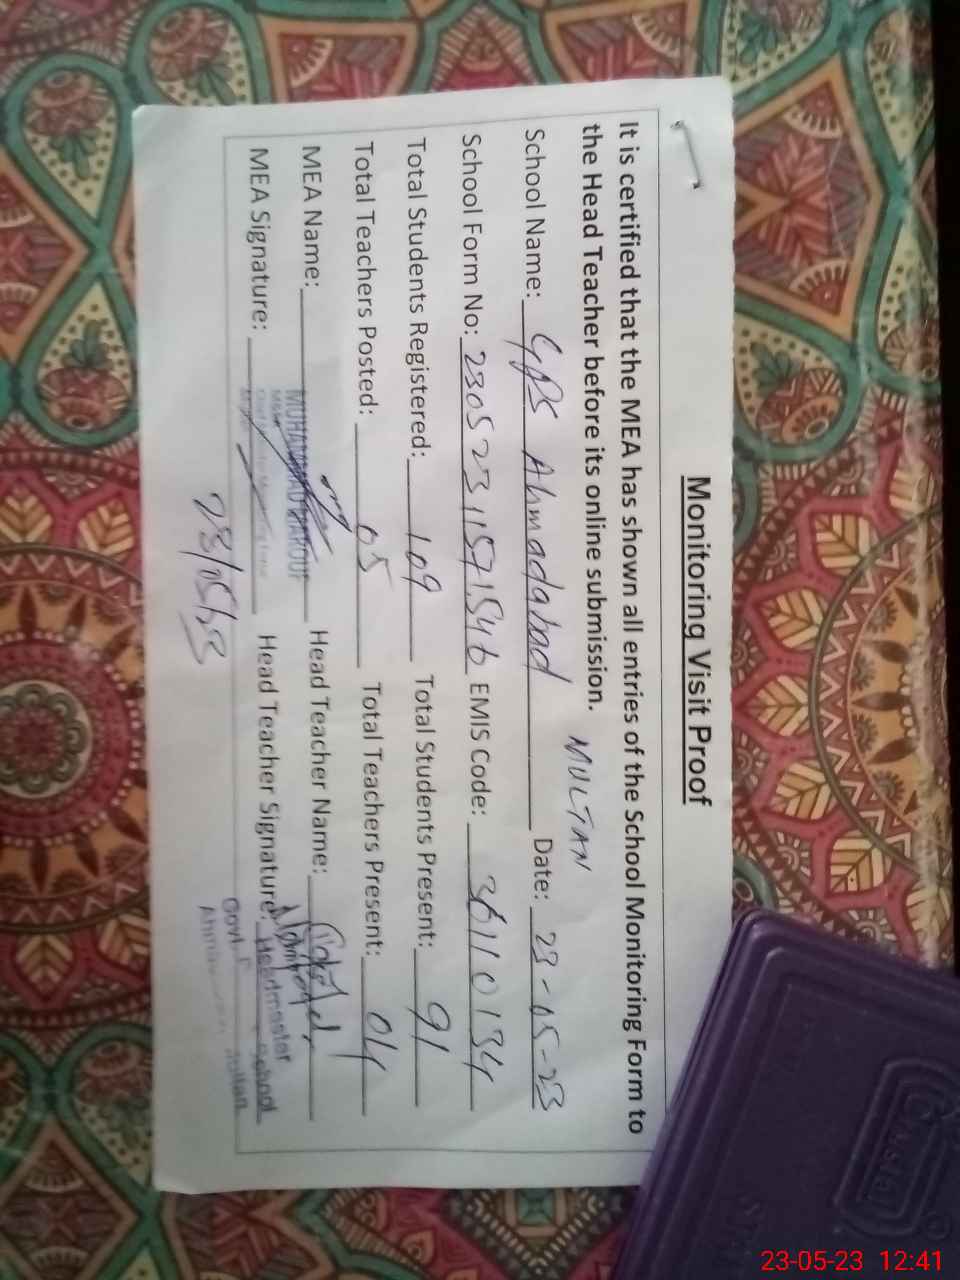 Monitoring Visit Proof
It is certified that the MEA has shown all entries of the School Monitoring Form to
the Head Teacher before its online submission.
MULTAN
School Name: GPS Ahmadabad Date: 23-05-23
School Form No: EMIS Code: 36110134
Total Students Registered: 109 Total Students Present: 91
Total Teachers Posted: 05 Total Teachers Present: 04
MEA Name: MUHAMMAD Head Teacher Name:
MEA Signature: Head Teacher Signature: Headmaster
Govt. School
23/05/23
Crystal
23-05-23 12:41